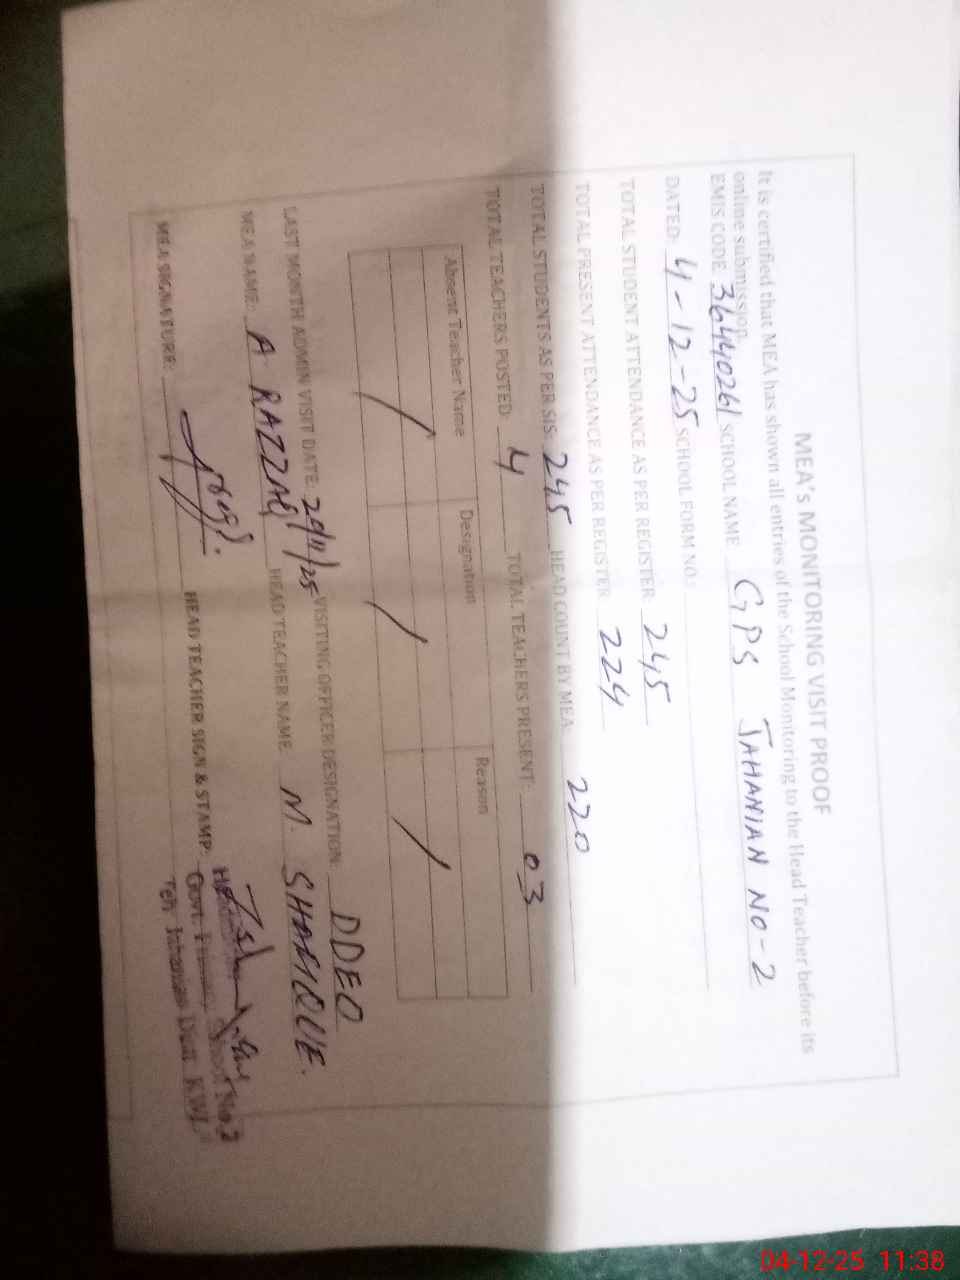 MEA's MONITORING VISIT PROOF
It is certified that MEA has shown all entries of the School Monitoring to the Head Teacher before its
online submission.
EMIS CODE 36440261 SCHOOL NAME GPS JAHANIAN NO-2
DATED: 4-12-25 SCHOOL FORM NO.:
TOTAL STUDENT ATTENDANCE AS PER REGISTER: 245
TOTAL PRESENT ATTENDANCE AS PER REGISTER 224
TOTAL STUDENTS AS PER SIS: 245 HEAD COUNT BY MEA 220
TOTAL TEACHERS POSTED: 4 TOTAL TEACHERS PRESENT: 03
Absent Teacher Name Designation Reason
/ / /
LAST MONTH ADMIN VISIT DATE: 29/11/25 VISITING OFFICER DESIGNATION: DDEO
MEA NAME: A RAZZAQ HEAD TEACHER NAME M. SHAFIQUE.
MEA SIGNATURE: HEAD TEACHER SIGN & STAMP:
Govt. School No.2
Teh. Jahanian Distt. KWL
04-12-25 11:38